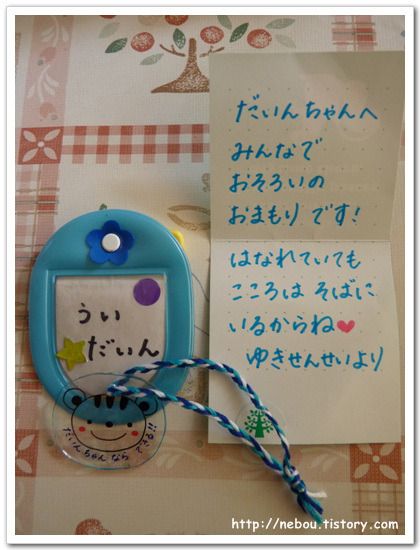 だいんちゃんへ
みんなで
おそろいの
おまもり です!
はなれていても
こころは そばに
いるからね
ゆきせんせいより
うい
だいん
だいんちゃんなら できる!!
http://nebou.tistory.com